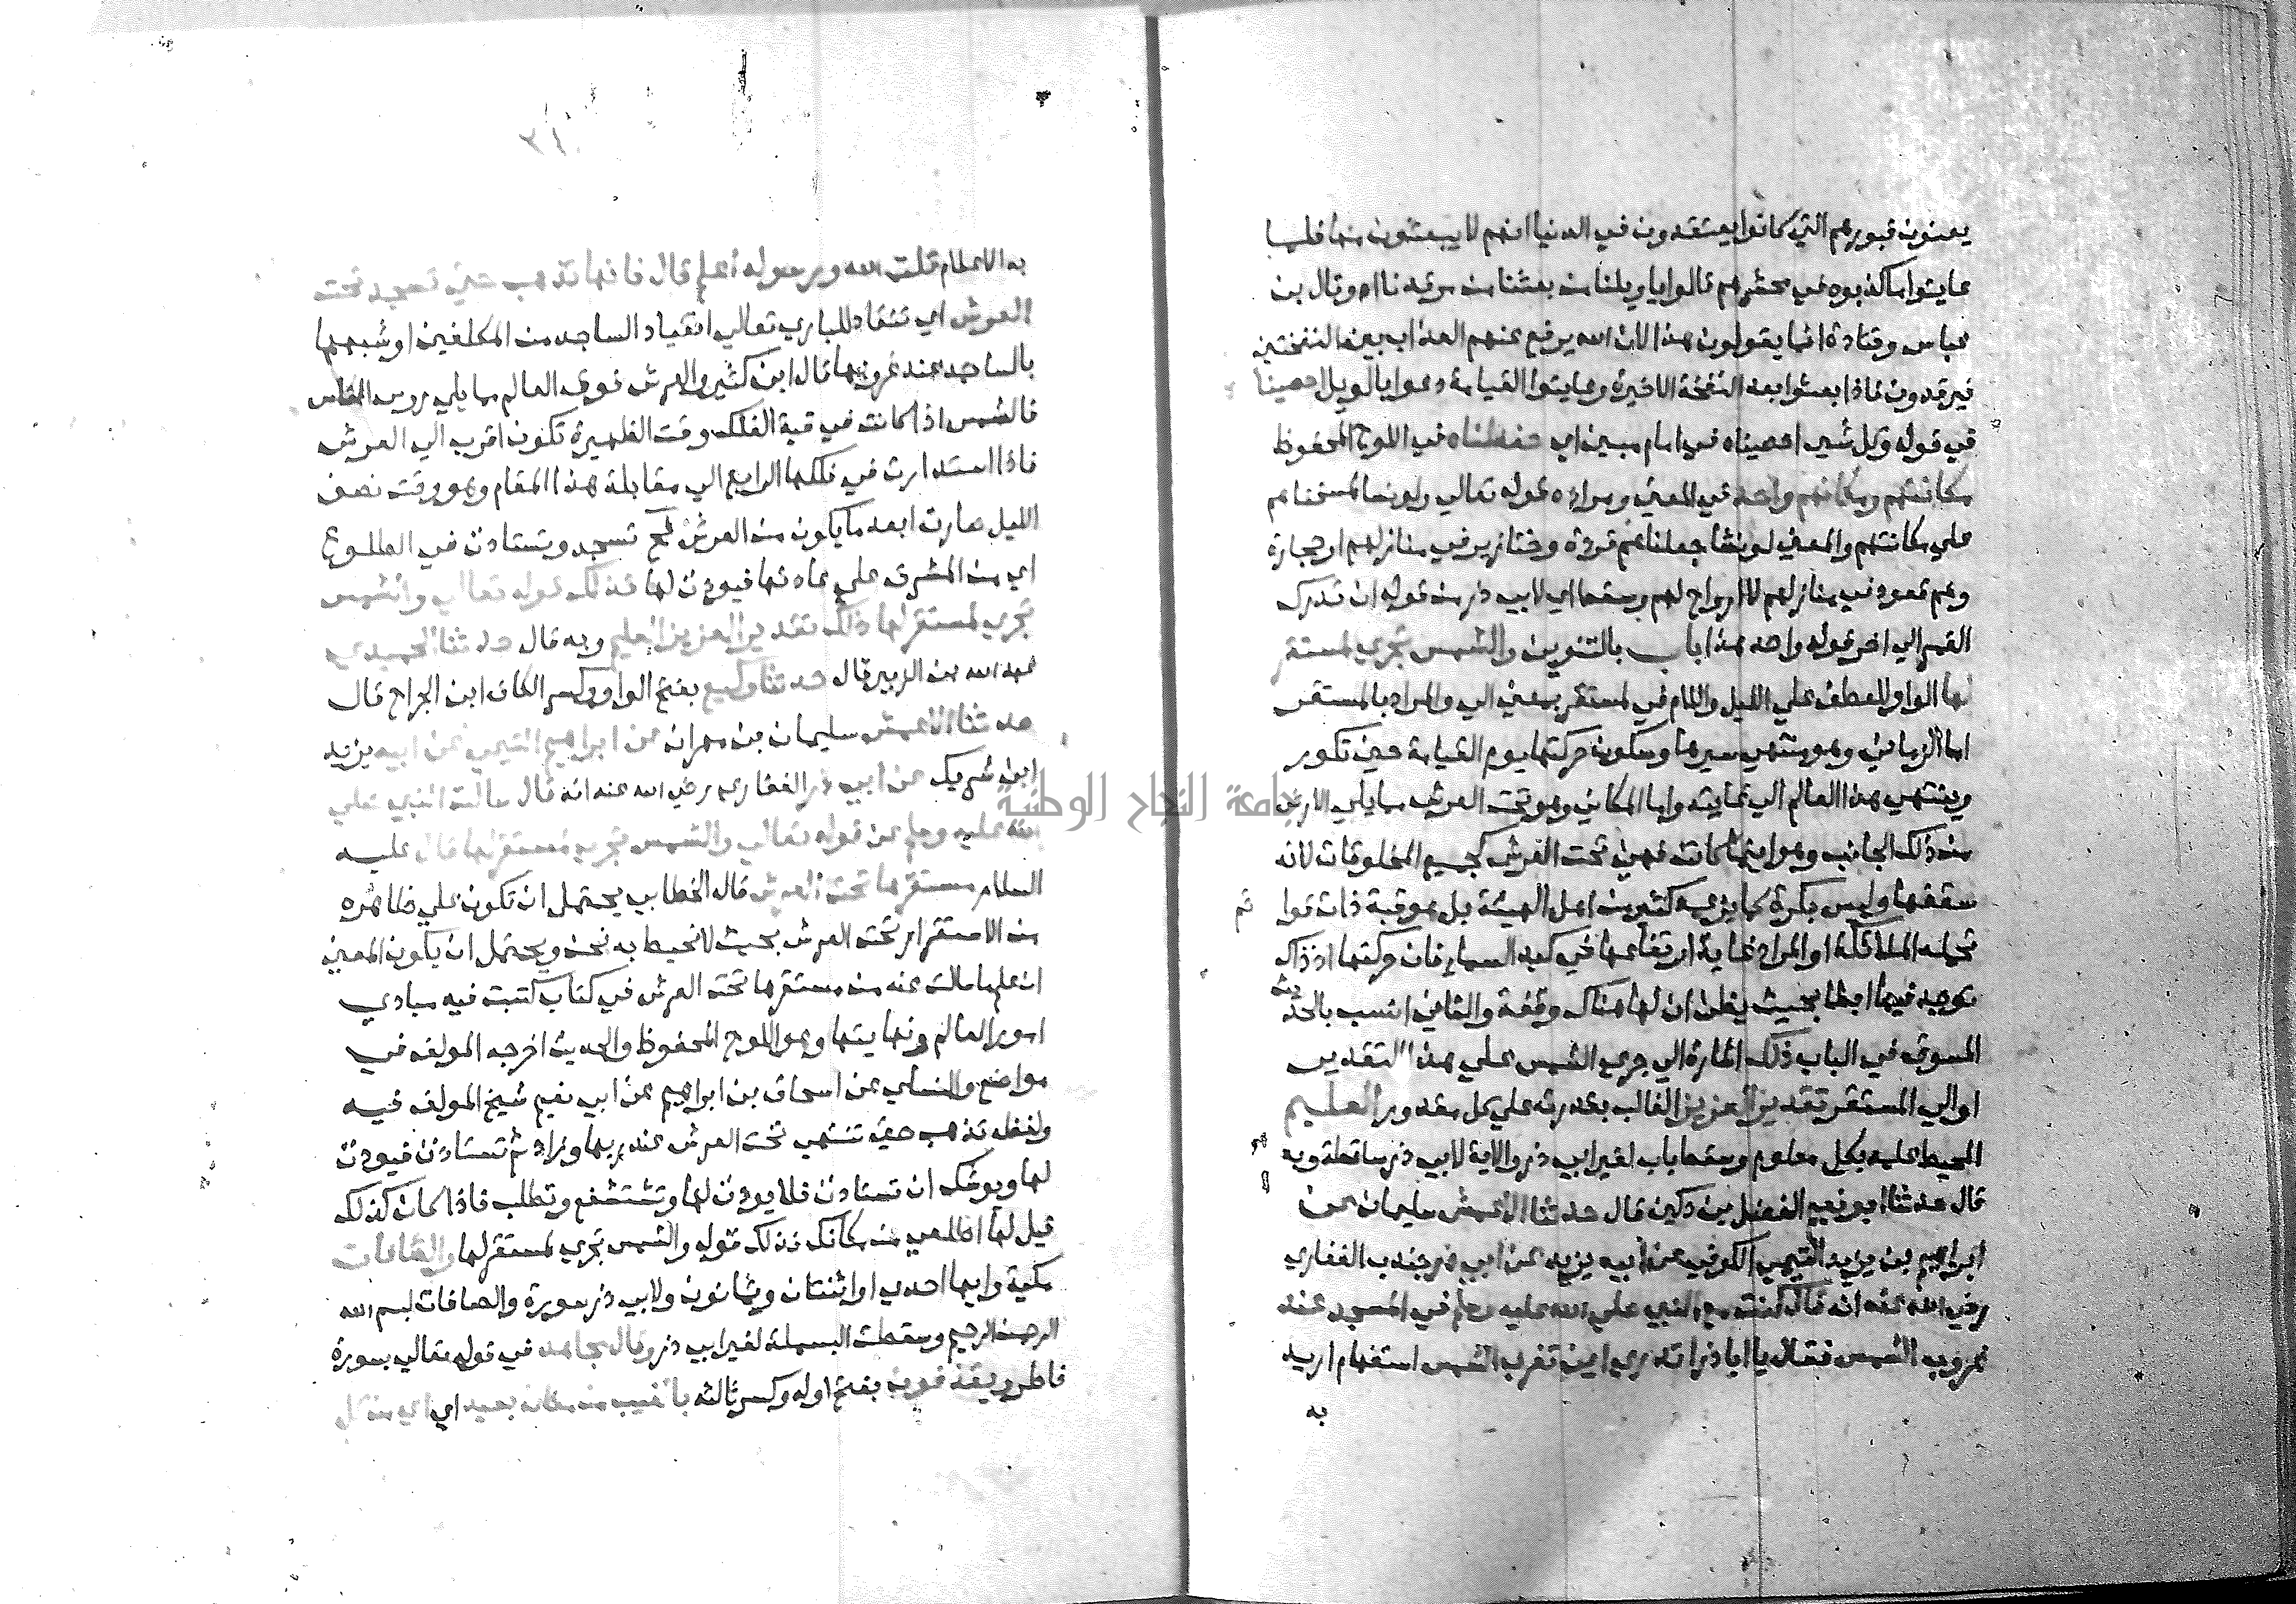 يعنون قبورهم التي كانوا يعتقدون في الدنيا انهم لا يبعثون منها فلما
عاينوا ما كذبوه في محشرهم قالوا يا ويلنا من بعثنا من مرقدنا اه وقال بن
عباس وقتادة انما يقولون هذا لان الله يرفع عنهم العذاب بين النفختين
فيرقدون فاذا بعثوا بعد النفخة الاخيرة وعاينوا القيامة دعوا بالويل احصينا
في قوله وكل شي احصيناه في امام مبين اي حفظناه في اللوح المحفوظ
مكانتهم ومكانهم واحد في المعني ومراده قوله تعالي ولو نشا لمسخناهم
علي مكانتهم والمعني لو نشا جعلناهم قردة وخنازير في منازلهم او حجارة
وهم قعود في منازلهم لا ارواح لهم وسقط اي لابي ذر من قوله ان تدرك
القمر الي اخر قوله واحد هذا باب بالتنوين والشمس تجري لمستقر
لها الواو للعطف علي الليل واللام في لمستقر بمعني الي والمراد بالمستقر
اما الزماني وهو منتهي سيرها وسكون حركتها يوم القيامة حين تكور
وينتهي هذا العالم الي غايته واما المكاني وهو تحت العرش مما يلي الارض
من ذلك الجانب وهو اينما كانت فهي تحت العرش كجميع المخلوقات لانه
سقفها وليس بكرة كما يزعمه كثير من اهل الهيئة بل هو قبة ذات قوا
ئم
تحمله الملائكة او المراد غاية ارتفاعها في كبد السماء فان حركتها اذ ذاك
توجد فيها ابطا بحيث يظن ان لها هناك وقفة والثاني انسب بالحد
يث
المسوق في الباب ذلك اشارة الي جري الشمس علي هذا التقدير
او الي المستقر تقدير العزيز الغالب بقدرته علي كل مقدور العليم
المحيط علمه بكل معلوم وسقط باب لغير ابي ذر والاية لابي ذر ساقطة وبه
قال حدثنا ابو نعيم الفضل بن دكين قال حدثنا الاعمش سليمان عن
ابراهيم بن يزيد التيمي الكوفي عن ابيه يزيد عن ابي ذر جندب الغفاري
رضي الله عنه انه قال كنت مع النبي صلي الله عليه وسلم في المسجد عند
غروب الشمس فقال يا ابا ذر اتدري اين تغرب الشمس استفهام اريد
به
٣١٠
به الاعلام قلت الله ورسوله اعلم قال فانها تذهب حتي تسجد تحت
العرش اي تنقاد للباري تعالي انقياد الساجد من المكلفين او شبهها
بالساجد عند غروبها قال ابن كثير والعرش فوق العالم مما يلي روس الناس
فالشمس اذا كانت في قبة الفلك وقت الظهيرة تكون اقرب الي العرش
فاذا استدارت في فلكها الرابع الي مقابلة هذا المقام وهو وقت نصف
الليل صارت ابعد ما يكون من العرش فح تسجد وتستاذن في الطلوع
اي من المشرق علي عادتها فيوذن لها فذلك قوله تعالي والشمس
تجري لمستقر لها ذلك تقدير العزيز العليم وبه قال حدثنا الحميدي
عبد الله بن الزبير قال حدثنا وكيع بفتح الواو وكسر الكاف ابن الجراح قال
حدثنا الاعمش سليمان بن مهران عن ابراهيم التيمي عن ابيه يزيد
ابن شريك عن ابي ذر الغفاري رضي الله عنه انه قال سالت النبي صلي
الله عليه وسلم عن قوله تعالي والشمس تجري لمستقر لها قال عليه
السلام مستقرها تحت العرش قال الخطابي يحتمل ان تكون علي ظاهره
من الاستقرار تحت العرش بحيث لا نحيط به نحن ويحتمل ان يكون المعني
ان علم ما سالت عنه من مستقرها تحت العرش في كتاب كتبت فيه مبادي
امور العالم ونهايتها وهو اللوح المحفوظ والحديث اخرجه المولف في
مواضع والنسائي عن اسحاق بن ابراهيم عن ابي نعيم شيخ المولف فيه
ولفظه تذهب حتي تنتهي تحت العرش عند ربها وزاد ثم تستاذن فيوذن
لها ويوشك ان تستاذن فلا يوذن لها وتستشفع وتطلب فاذا كان كذلك
قيل لها اطلعي من مكانك فذلك قوله والشمس تجري لمستقر لها والصافات
مكية وايها احدي او اثنتان وثمانون ولابي ذر سورة والصافات بسم الله
الرحمن الرحيم وسقطت البسملة لغير ابي ذر وقال مجاهد في قوله تعالي بسورة
فاطر ويقذفون بفتح اوله وكسر ثالثه بالغيب من مكان بعيد اي من كل
جامعة النجاح الوطنية